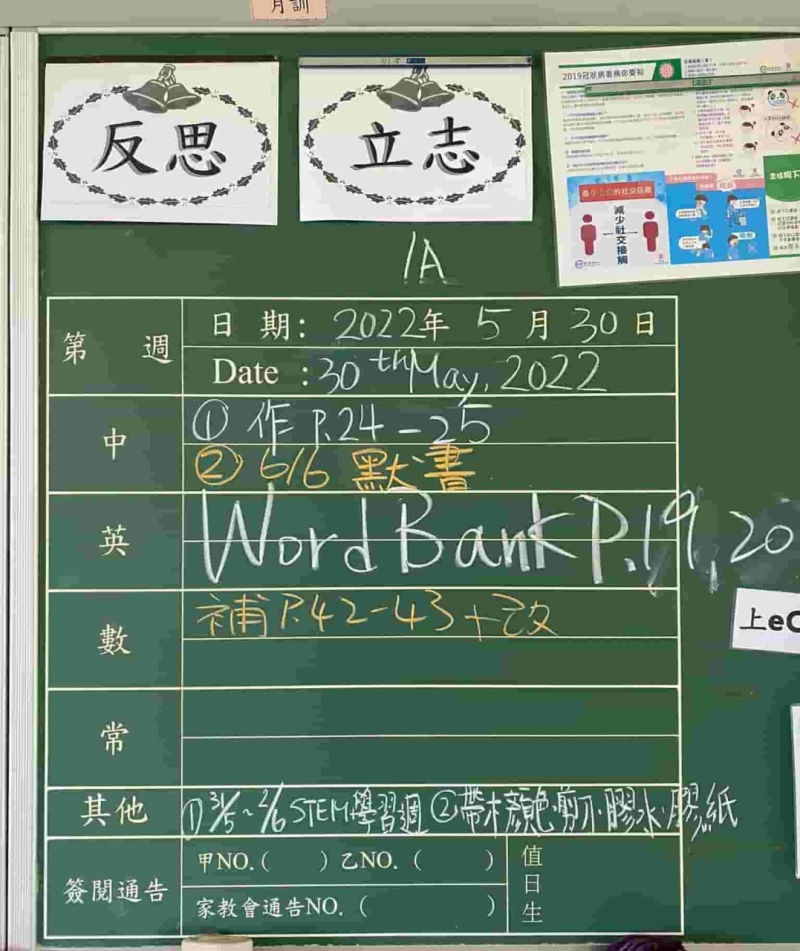 月訓
反思
立志
2019冠狀病毒病你要知
減少社交接觸
1A
第 週
日 期: 2022年 5月 30日
Date : 30th May, 2022
中
① 作 P.24-25
② 6/6 默書
英
Word Bank P.19, 20
上eC
數
補 P.42-43+改
常
其他
① 31/5~2/6 STEM學習週 ②帶木顏色、剪刀、膠水、膠紙
簽閱通告
甲NO.( ) 乙NO.( )
家教會通告NO.( )
值日生